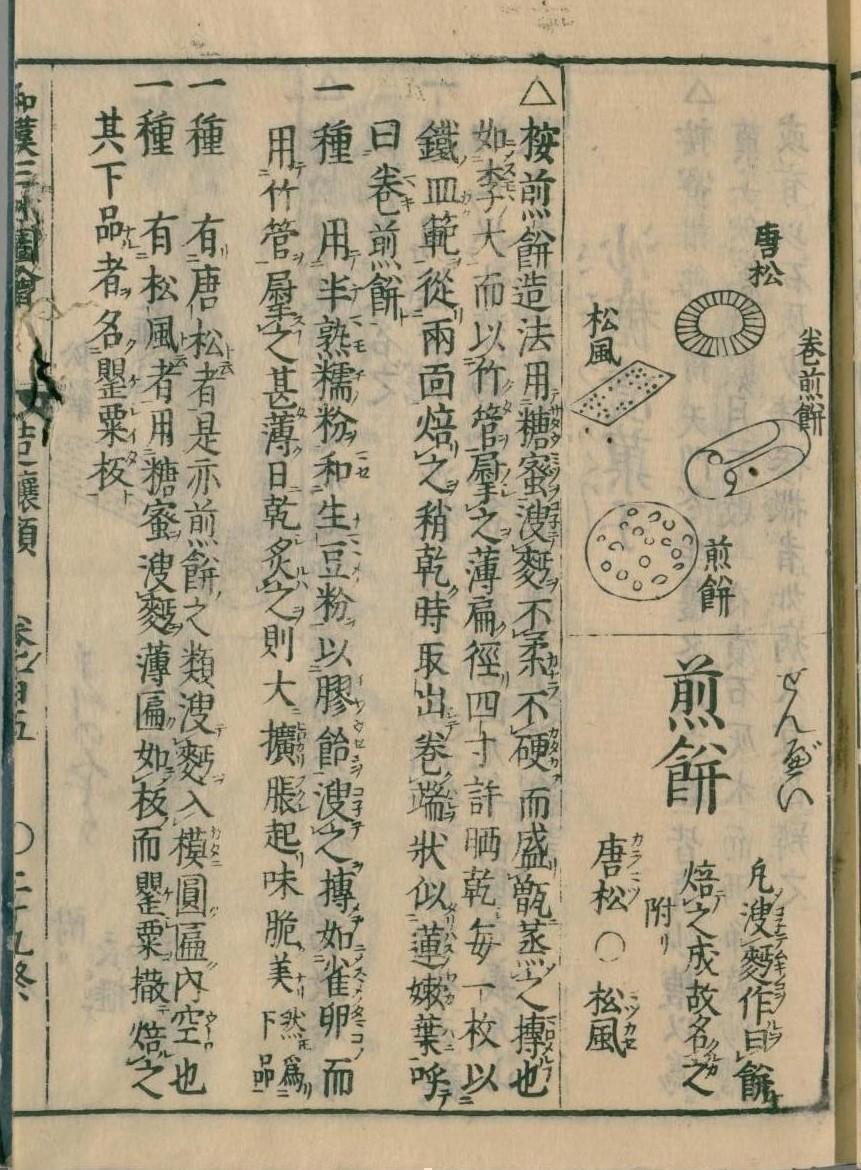 唐松
卷煎餅
松風
煎餅
せんべい
煎餅
凡溲麪作曰餅
焙之成故名之
附リ
唐松 〇 松風
△按煎餅造法用糖蜜溲麪不柔不硬而盛甑蒸之摶也
如李大而以竹管㞡之薄扁徑四寸許晒乾每一枚以
鐵皿範從兩面焙之稍乾時取出卷端狀似蓮嫩葉呼
曰卷煎餅
一種 用半熟糯粉和生豆粉以膠飴溲之摶如雀卵而
用竹管㞡之甚薄日乾炙之則大擴脹起味脆美然爲下品
一種 有唐松者是亦煎餅之類溲麪入模圓匾內空也
一種 有松風者用糖蜜溲麪薄匾如板而罌粟撒焙之
其下品者名罌粟板
和漢三才圖會
造釀類 卷百五 〇二十九終